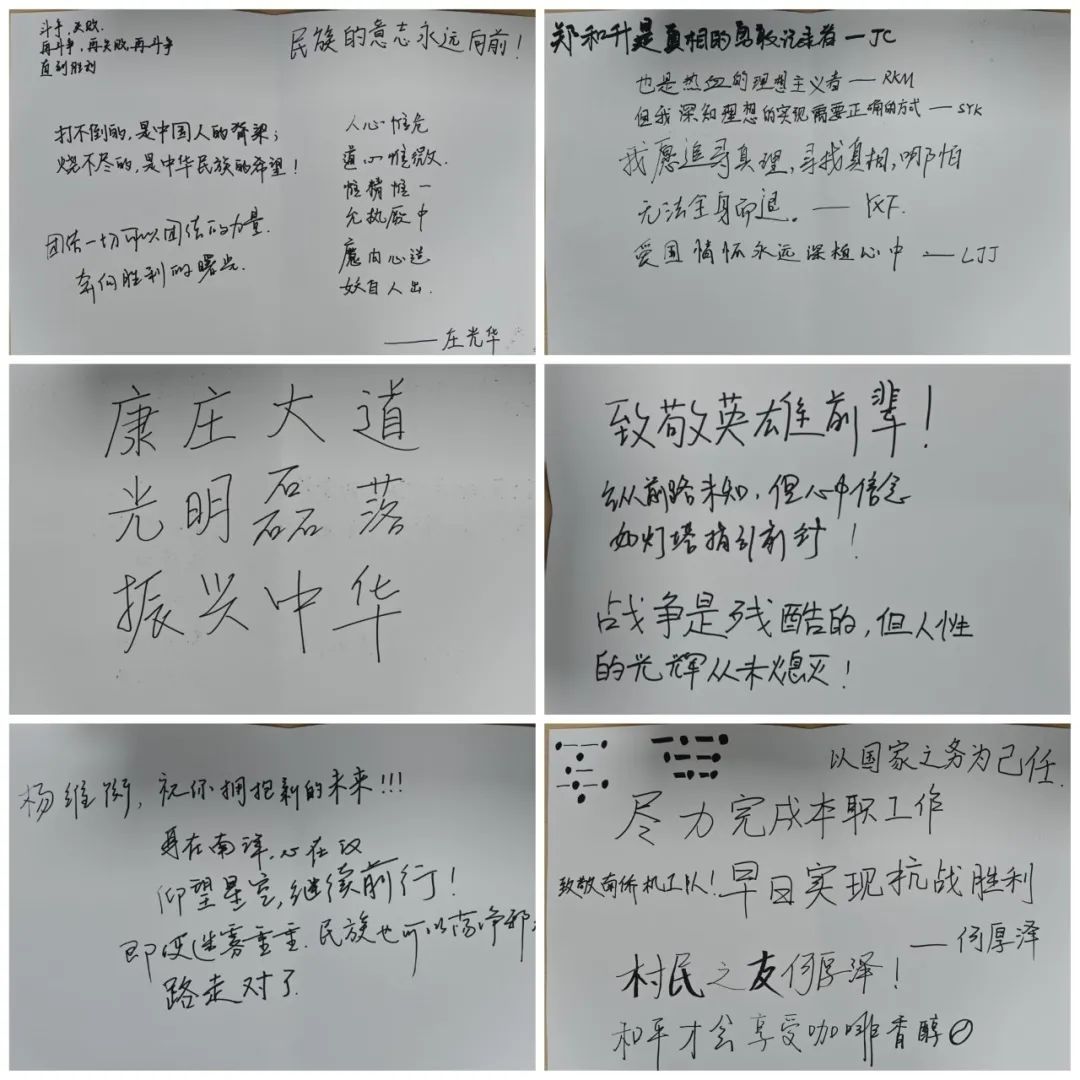 斗争,失败.
再斗争,再失败,再斗争
直到胜利
民族的意志永远向前!
打不倒的,是中国人的脊梁;
烧不尽的,是中华民族的希望!
团结一切可以团结的力量.
奔向胜利的曙光.
人心惟危
道心惟微.
惟精惟一
允执厥中
魔由心送
妖自人出.
——庄光华
郑和升是真相的勇敢记录者—JC
也是热血的理想主义者——RKM
但我深知理想的实现需要正确的方式——SYK
我愿追寻真理,寻找真相,哪怕
无法全身而退。——KXF.
爱国情怀永远深植心中——LJJ
康庄大道
光明磊落
振兴中华
致敬英雄前辈!
纵前路未知,但心中信念
如灯塔指引前针!
战争是残酷的,但人性
的光辉从未熄灭!
杨维 ,祝你拥抱新的未来!!!
身在南洋,心在汉
仰望星空,继续前行!
即便迷雾重重.民族也可以荡净邪
路走对了
以国家之务为己任.
尽力完成本职工作
致敬南侨机工队!
早日实现抗战胜利
——何厚泽
村民之友何厚泽!
和平才会享受咖啡香醇